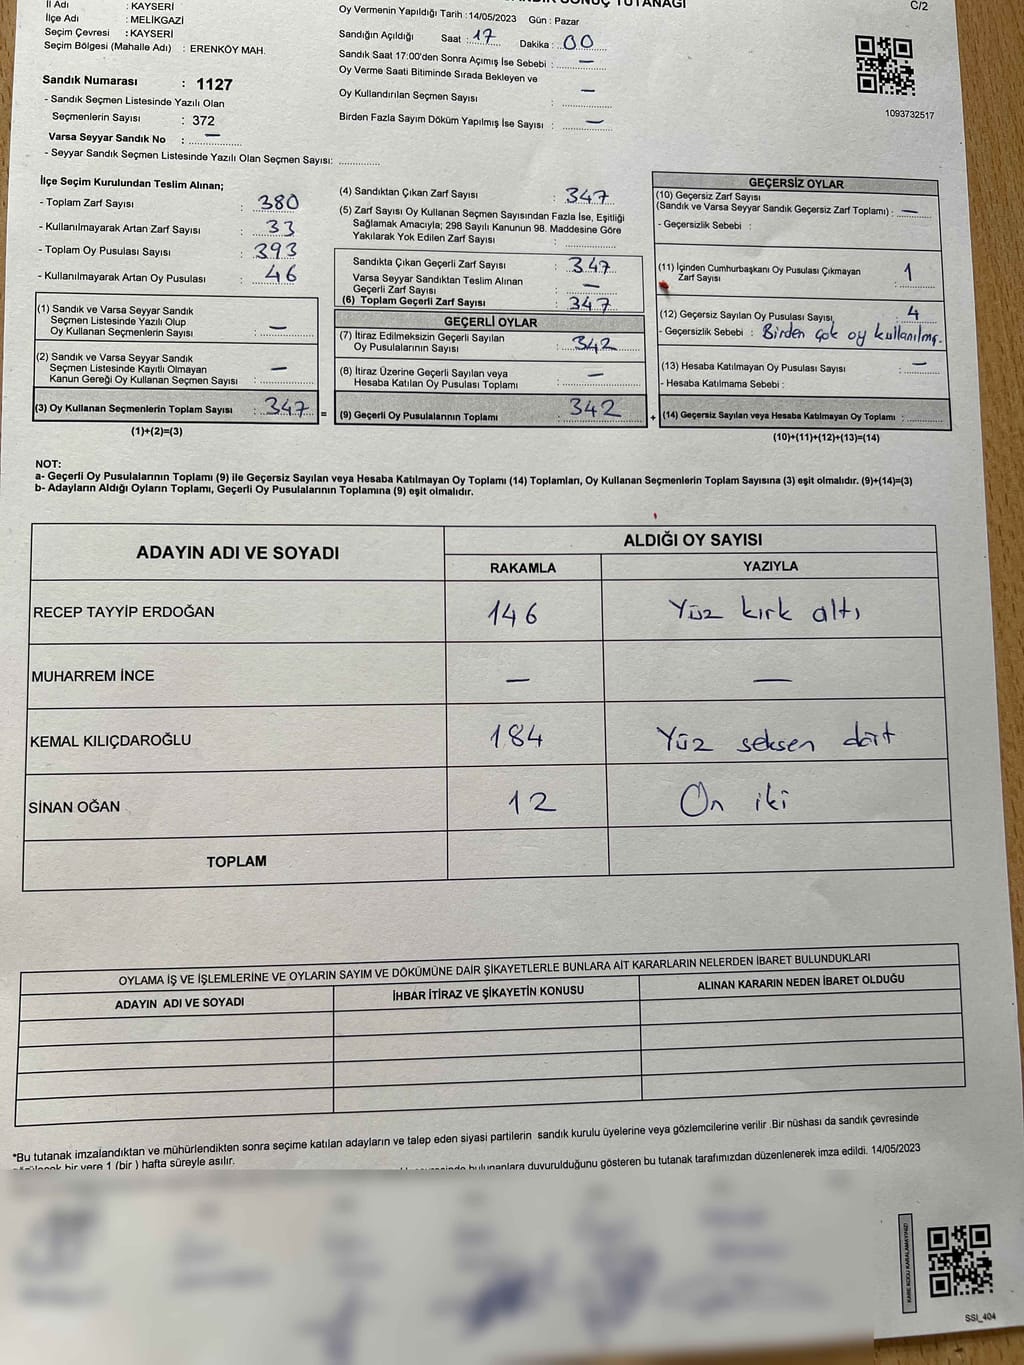 İl Adı : KAYSERİ
İlçe Adı : MELİKGAZİ
Seçim Çevresi : KAYSERİ
Seçim Bölgesi (Mahalle Adı) : ERENKÖY MAH.
Sandık Numarası : 1127
- Sandık Seçmen Listesinde Yazılı Olan
Seçmenlerin Sayısı : 372
Varsa Seyyar Sandık No : —
- Seyyar Sandık Seçmen Listesinde Yazılı Olan Seçmen Sayısı: ............
SONUÇ TUTANAĞI
Oy Vermenin Yapıldığı Tarih :14/05/2023 Gün : Pazar
Sandığın Açıldığı Saat : 17 Dakika : 00
Sandık Saat 17:00'den Sonra Açımış İse Sebebi : —
Oy Verme Saati Bitiminde Sırada Bekleyen ve
Oy Kullandırılan Seçmen Sayısı : —
Birden Fazla Sayım Döküm Yapılmış İse Sayısı : —
C/2
1093732517
İlçe Seçim Kurulundan Teslim Alınan;
- Toplam Zarf Sayısı : 380
- Kullanılmayarak Artan Zarf Sayısı : 33
- Toplam Oy Pusulası Sayısı : 393
- Kullanılmayarak Artan Oy Pusulası : 46
(1) Sandık ve Varsa Seyyar Sandık
Seçmen Listesinde Yazılı Olup
Oy Kullanan Seçmenlerin Sayısı : —
(2) Sandık ve Varsa Seyyar Sandık
Seçmen Listesinde Kayıtlı Olmayan
Kanun Gereği Oy Kullanan Seçmen Sayısı : —
(3) Oy Kullanan Seçmenlerin Toplam Sayısı : 347 =
(1)+(2)=(3)
(4) Sandıktan Çıkan Zarf Sayısı : 347
(5) Zarf Sayısı Oy Kullanan Seçmen Sayısından Fazla İse, Eşitliği
Sağlamak Amacıyla; 298 Sayılı Kanunun 98. Maddesine Göre
Yakılarak Yok Edilen Zarf Sayısı :
Sandıkta Çıkan Geçerli Zarf Sayısı : 347
Varsa Seyyar Sandıktan Teslim Alınan
Geçerli Zarf Sayısı : —
(6) Toplam Geçerli Zarf Sayısı : 347
GEÇERLİ OYLAR
(7) İtiraz Edilmeksizin Geçerli Sayılan
Oy Pusulalarının Sayısı : 342
(8) İtiraz Üzerine Geçerli Sayılan veya
Hesaba Katılan Oy Pusulası Toplamı : —
(9) Geçerli Oy Pusulalarının Toplamı : 342 +
GEÇERSİZ OYLAR
(10) Geçersiz Zarf Sayısı
(Sandık ve Varsa Seyyar Sandık Geçersiz Zarf Toplamı) : —
- Geçersizlik Sebebi :
(11) İçinden Cumhurbaşkanı Oy Pusulası Çıkmayan
Zarf Sayısı : 1
(12) Geçersiz Sayılan Oy Pusulası Sayısı : 4
- Geçersizlik Sebebi : Birden çok oy kullanılmış.
(13) Hesaba Katılmayan Oy Pusulası Sayısı : —
- Hesaba Katılmama Sebebi :
(14) Geçersiz Sayılan veya Hesaba Katılmayan Oy Toplamı : ............
(10)+(11)+(12)+(13)=(14)
NOT:
a- Geçerli Oy Pusulalarının Toplamı (9) ile Geçersiz Sayılan veya Hesaba Katılmayan Oy Toplamı (14) Toplamları, Oy Kullanan Seçmenlerin Toplam Sayısına (3) eşit olmalıdır. (9)+(14)=(3)
b- Adayların Aldığı Oyların Toplamı, Geçerli Oy Pusulalarının Toplamına (9) eşit olmalıdır.
ADAYIN ADI VE SOYADI
ALDIĞI OY SAYISI
RAKAMLA YAZIYLA
RECEP TAYYİP ERDOĞAN 146 Yüz kırk altı
MUHARREM İNCE — —
KEMAL KILIÇDAROĞLU 184 Yüz seksen dört
SİNAN OĞAN 12 On iki
TOPLAM
OYLAMA İŞ VE İŞLEMLERİNE VE OYLARIN SAYIM VE DÖKÜMÜNE DAİR ŞİKAYETLERLE BUNLARA AİT KARARLARIN NELERDEN İBARET BULUNDUKLARI
ADAYIN ADI VE SOYADI İHBAR İTİRAZ VE ŞİKAYETİN KONUSU ALINAN KARARIN NEDEN İBARET OLDUĞU
*Bu tutanak imzalandıktan ve mühürlendikten sonra seçime katılan adayların ve talep eden siyasi partilerin sandık kurulu üyelerine veya gözlemcilerine verilir .Bir nüshası da sandık çevresinde
bir yere 1 (bir ) hafta süreyle asılır.
bulunanlara duyurulduğunu gösteren bu tutanak tarafımızdan düzenlenerek imza edildi. 14/05/2023
KARE KODU KARALAMAYINIZ!
SSI_404